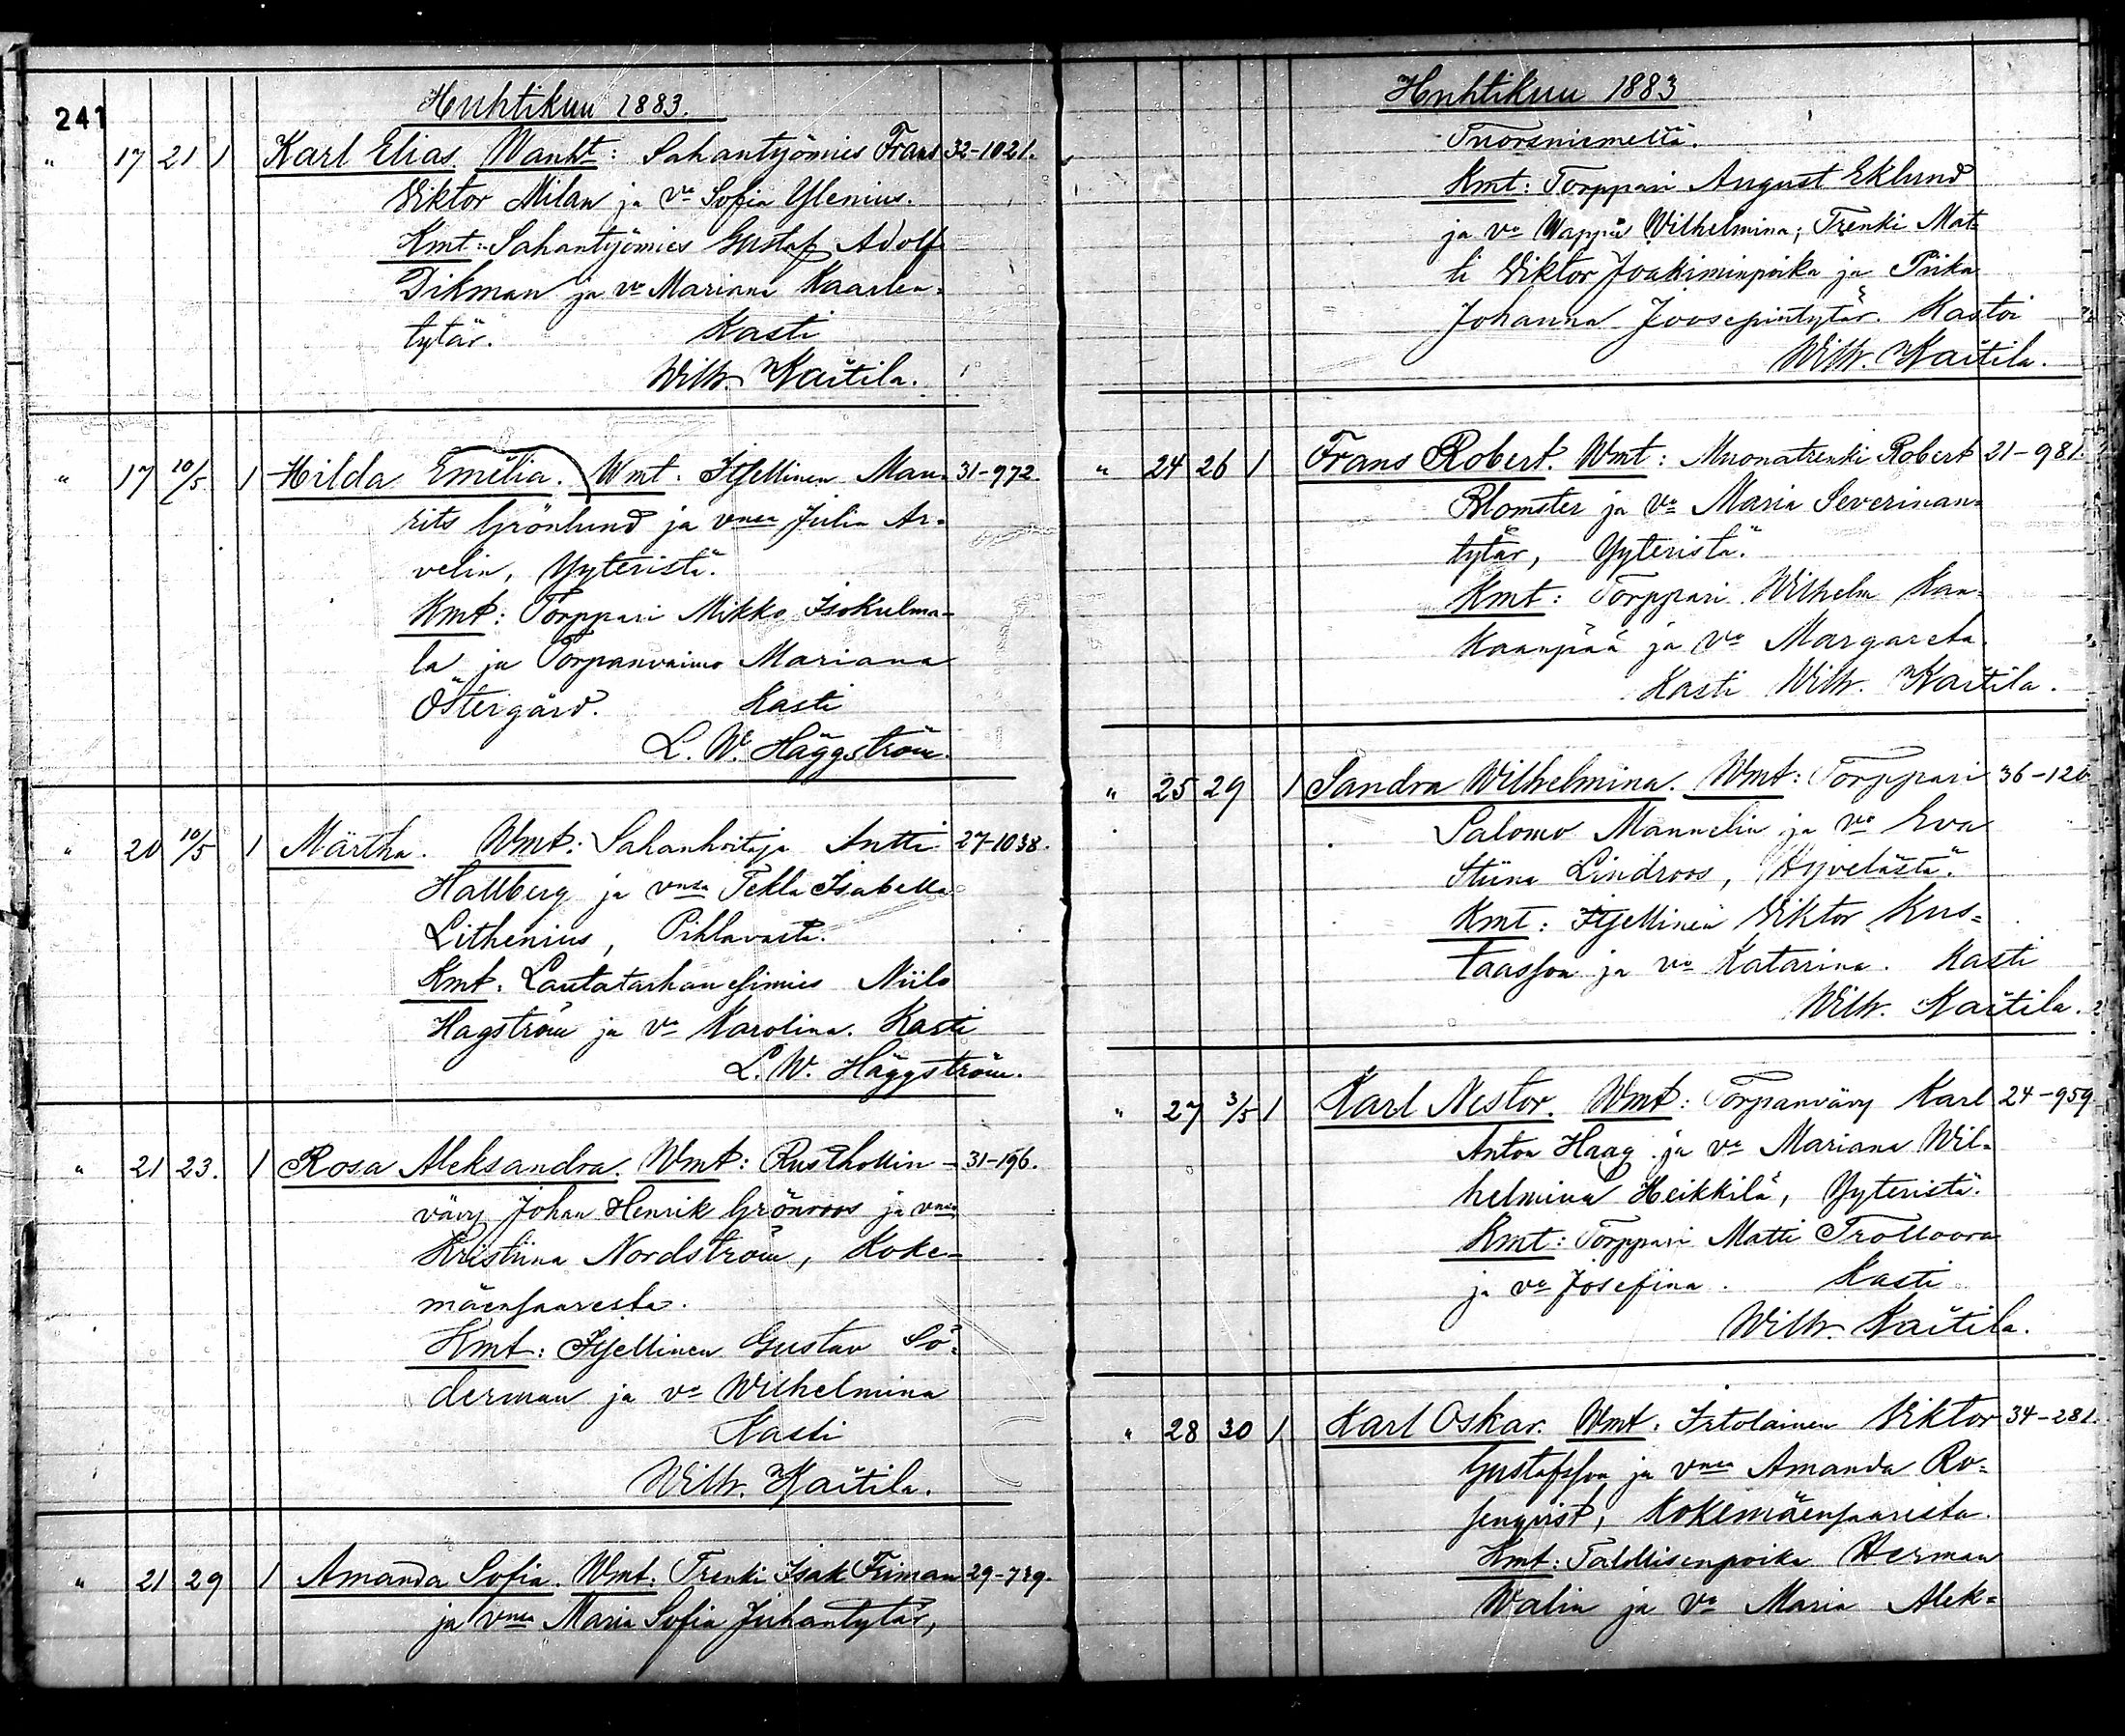 241
Huhtikuu 1883.
" 17 21 1 Karl Elias. Wanht: Sahantyömies Frans 32-1021.
Viktor Milan ja vo Sofia Ylenius.
Kmt: Sahantyömies Gustaf Adolf
Dikman ja vo Mariana Kaarlen-
tytär. Kasti
Wilh. Kaitila.
" 17 10/5. 1 Hilda Emelia. Wmt. Itsellinen Mau- 31-972.
rits Grönlund ja vnsa Julia Ar-
velin, Yyteristä.
Kmt: Torppari Mikko Isokulma-
la ja Torpanvaimo Mariana
Östergård. Kasti
L. W. Häggström.
" 20 10/5 1 Märtha. Wmt: Sahanhoitaja Antti 27-1038.
Hallberg ja vnsa Tekla Isabella
Lithenius, Pihlavasta.
Kmt. Lautatarhanesimies Niilo
Hagström ja vo Karolina. Kasti
L. W. Häggström.
" 21 23. 1 Rosa Aleksandra. Wmt: Rusthollin- 31-196.
vävy Johan Henrik Grönroos ja vnsa
Kristiina Nordström, Koke-
mäensaaresta.
Kmt: Itsellinen Gustav Sö-
derman ja vo Wilhelmina
Kasti
Wilh. Kaitila.
" 21 29 1 Amanda Sofia. Wmt. Trenki Isak Friman 29-739.
ja vnsa Maria Sofia Juhantytär,
Huhtikuu 1883
Tuorsniemeltä.
Kmt: Torppari August Eklund
ja vo Wappu Wilhelmina; Trenki Mat-
ti Viktor Joakiminpoika ja Piika
Johanna Joosepintytär. Kastoi
Wilh. Kaitila.
" 24 26 1 Frans Robert. Wmt: Muonatrenki Robert 21-981.
Blomster ja vo Maria Severinan-
tytär, Yyteristä.
Kmt: Torppari Wilhelm Kan-
kaanpää ja vo Margareta.
Kasti Wilh. Kaitila.
" 25 29 1 Sandra Wilhelmina. Wmt: Torppari 36-120
Salomo Mannelin ja vo Eva
Stiina Lindroos, Hyvelästä.
Kmt: Itsellinen Viktor Kus-
taasson ja vo Katarina. Kasti
Wilh. Kaitila.
" 27 3/5 1 Karl Nestor. Wmt: Torpanvävy Karl 24-959
Anton Haag ja vo Mariana Wil-
helmina Heikkilä, Yyteristä.
Kmt: Torppari Matti Trolloora
ja vo Josefina. Kasti
Wilh. Kaitila.
" 28 30 1 Karl Oskar. Wmt. Irtolainen Viktor 34-281.
Gustafsson ja vnsa Amanda Ro-
senqvist, Kokemäensaaresta.
Kmt: Talollisenpoika Herman
Walin ja vo Maria Alek-